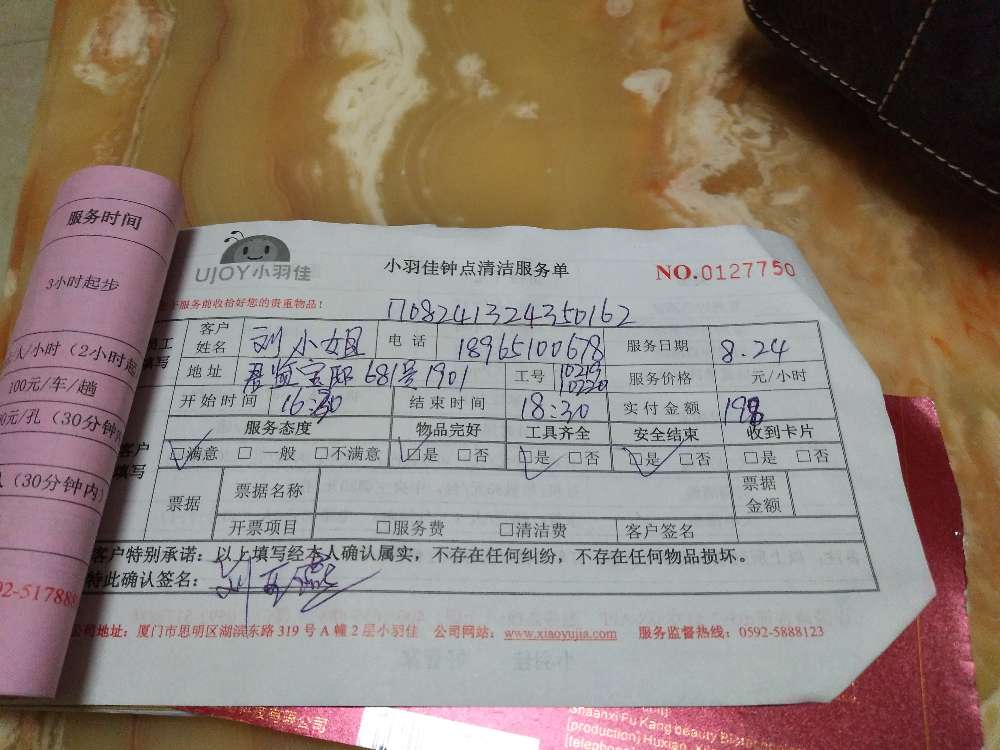 服务时间
3小时起步
人/小时（2小时起
100元/车/趟
0元/孔（30分钟内
（30分钟内）
92-517888
UJOY小羽佳
小羽佳钟点清洁服务单
NO.0127750
服务前收拾好您的贵重物品！
1708241324350162
客户姓名 刘小姐 电话 18965100678 服务日期 8.24
地址 681号1901 工号 10219 10220 服务价格 元/小时
开始时间 16:30 结束时间 18:30 实付金额 198
服务态度 物品完好 工具齐全 安全结束 收到卡片
☑满意 □一般 □不满意 ☑是 □否 ☑是 □否 ☑是 □否 □是 □否
票据 票据名称 票据金额
开票项目 □服务费 □清洁费 客户签名
客户特别承诺：以上填写经本人确认属实，不存在任何纠纷，不存在任何物品损坏。
特此确认签名：
公司地址：厦门市思明区湖滨东路 319 号 A 幢 2 层小羽佳 公司网站：www.xiaoyujia.com 服务监督热线：0592-5888123
有限公司
Shaanxi Fu Kang beauty
[production] Huxian,
[telephone]